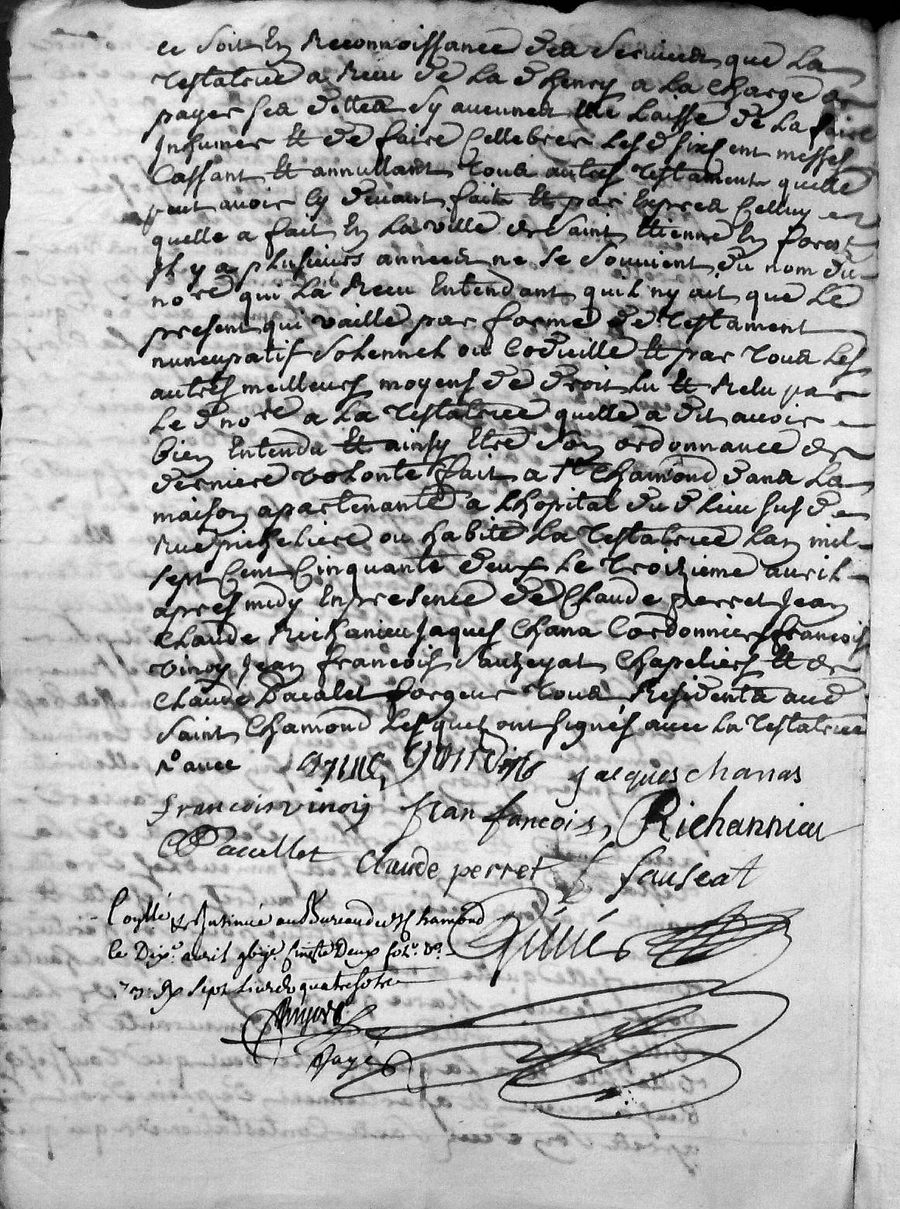 ce soit En Reconnoissance des services que La
Testatrice a Receu de La d henry a La Charge de
payer ses dittes sy aucunes Elle Laisse de La faire
Inhumer Et de faire Cellebrer Les d six Cent messes
Cassant Et annullant Tous autres Testaments quelle
peut avoir Cy devant faits Et par Exprès Celluy
quelle a fait En La ville de Saint Etienne En forest
Il y a plusieurs années ne se souvient du nom du
no re qui La Receu Entendant quil ny ait que Le
present qui vaille par forme de Testament
nuncupatif Solennel ou Codicille Et par Tous Les
autres meilleurs moyens de droit Lu Et Relu par
Le d no re a La Testatrice quelle a dit avoir
bien Entendu Et ainsy Etre son ordonnance de
derniere volonté fait a St Chamond dans La
maison apartenante a Lhopital du d Lieu sus de
Rue ou habite La Testatrice Lan mil
sept Cent Cinquante deux Le Troizieme avril
apres midy En presence de Claude perret Jean
Claude Richanieu Jaques Chana Cordonniers francois
vinoy Jean francois Sauzeyat Chapeliers Et de
Claude Pacalet forgeur Tous Residents aud
Saint Chamond Lesquels ont signés avec La Testatrice
avec jacques chanas
francois vinoiy Jean francois Richannieu
Paccallet Claude perret Sauseat
Conllé & Insinué au Bureau de st chamond
le Dix avril Cinqte Deux fo vo
Rx sept Livres quatre sols
payé